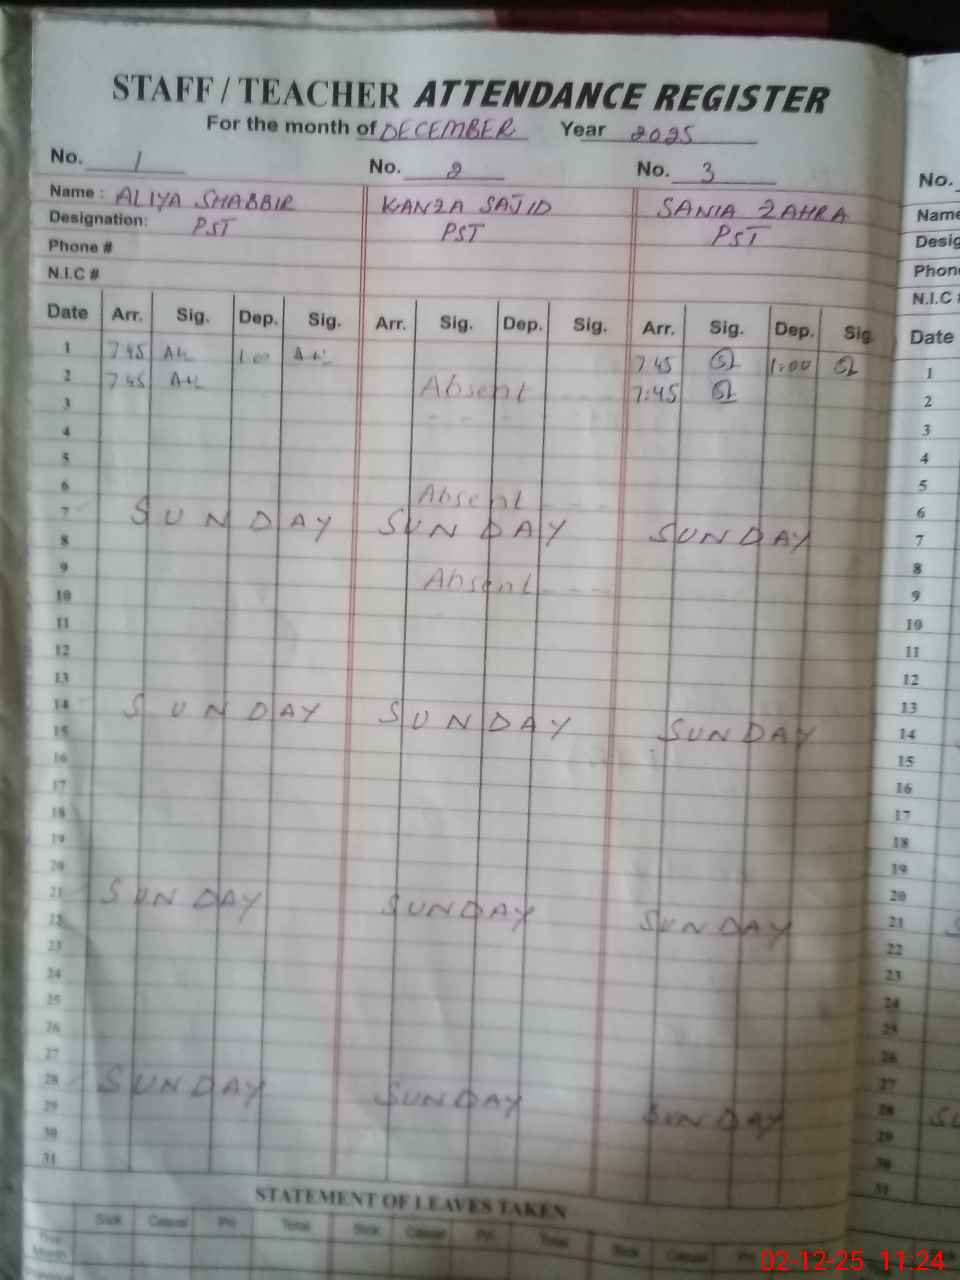 STAFF / TEACHER ATTENDANCE REGISTER
For the month of DECEMBER Year 2025
No. 1 No. 2 No. 3 No.
Name : ALIYA SHABBIR KANZA SAJID SANIA ZAHRA Name
Designation: PST PST PST Desig
Phone # Phon
N.I.C # N.I.C
Date Arr. Sig. Dep. Sig. Arr. Sig. Dep. Sig. Arr. Sig. Dep. Sig Date
1 7 45 1.00 7 45 1:00 1
2 7 45 Absent 7:45 2
3 3
4 4
5 5
6 Absent 6
7 SUNDAY SUNDAY SUNDAY 7
8 8
9 Absent 9
10 10
11 11
12 12
13 13
14 SUNDAY SUNDAY SUNDAY 14
15 15
16 16
17 17
18 18
19 19
20 20
21 SUNDAY SUNDAY SUNDAY 21
22 22
23 23
24 24
25 25
26 26
27 27
28 SUNDAY SUNDAY SUNDAY 28 SU
29 29
30 30
31 31
STATEMENT OF LEAVES TAKEN
Sick Casual Pri Total Sick Casual Pri Total Sick Casual
This Month
02-12-25 11:24